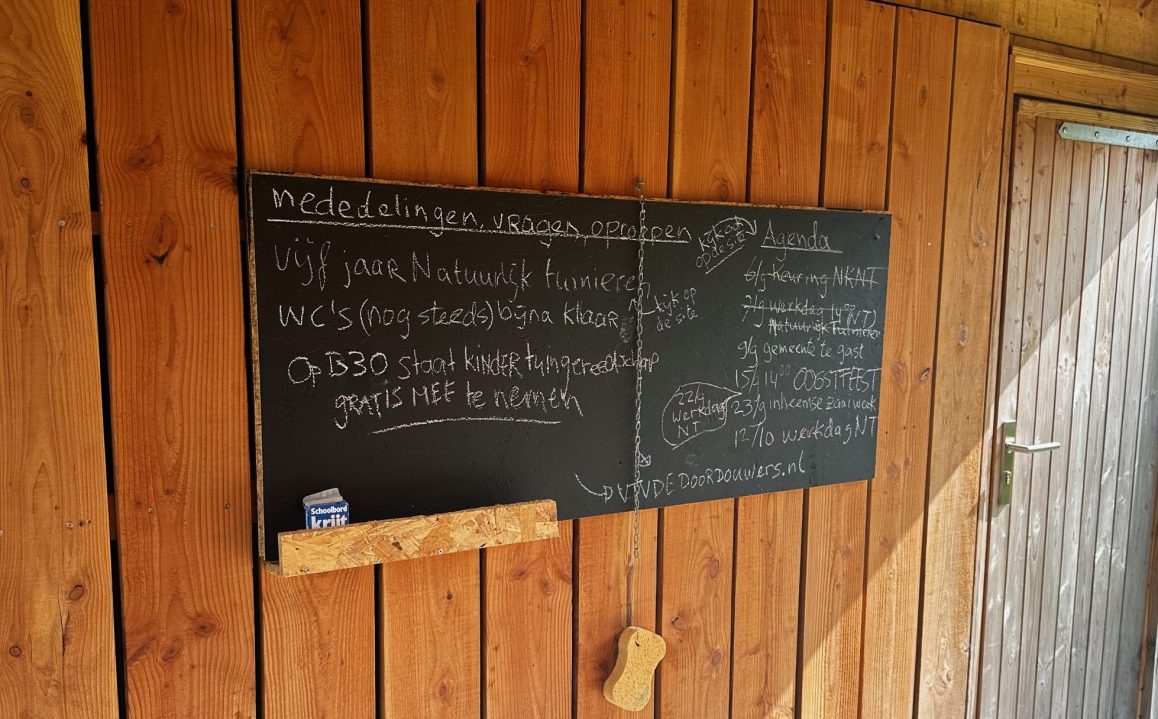 mededelingen, vragen, oproepen
Vijf jaar Natuurlijk tuinieren
WC's (nog steeds) bijna klaar
kijk op
de site
Op B30 staat KINDER tuingereedschap
GRATIS MEE te nemen
kijk ook
op de site
Agenda
6/9 Keuring NKNT
7/9 werkdag
Natuurlijk Tuinieren
9/9 gemeente te gast
15/9 14⁰⁰ OOGSTFEEST
23/9 inheemse zaaiweek
12/10 werkdag NT
22/9
werkdag
NT
VTVDEDOORDOUWERS.nl
Schoolbord
krijt